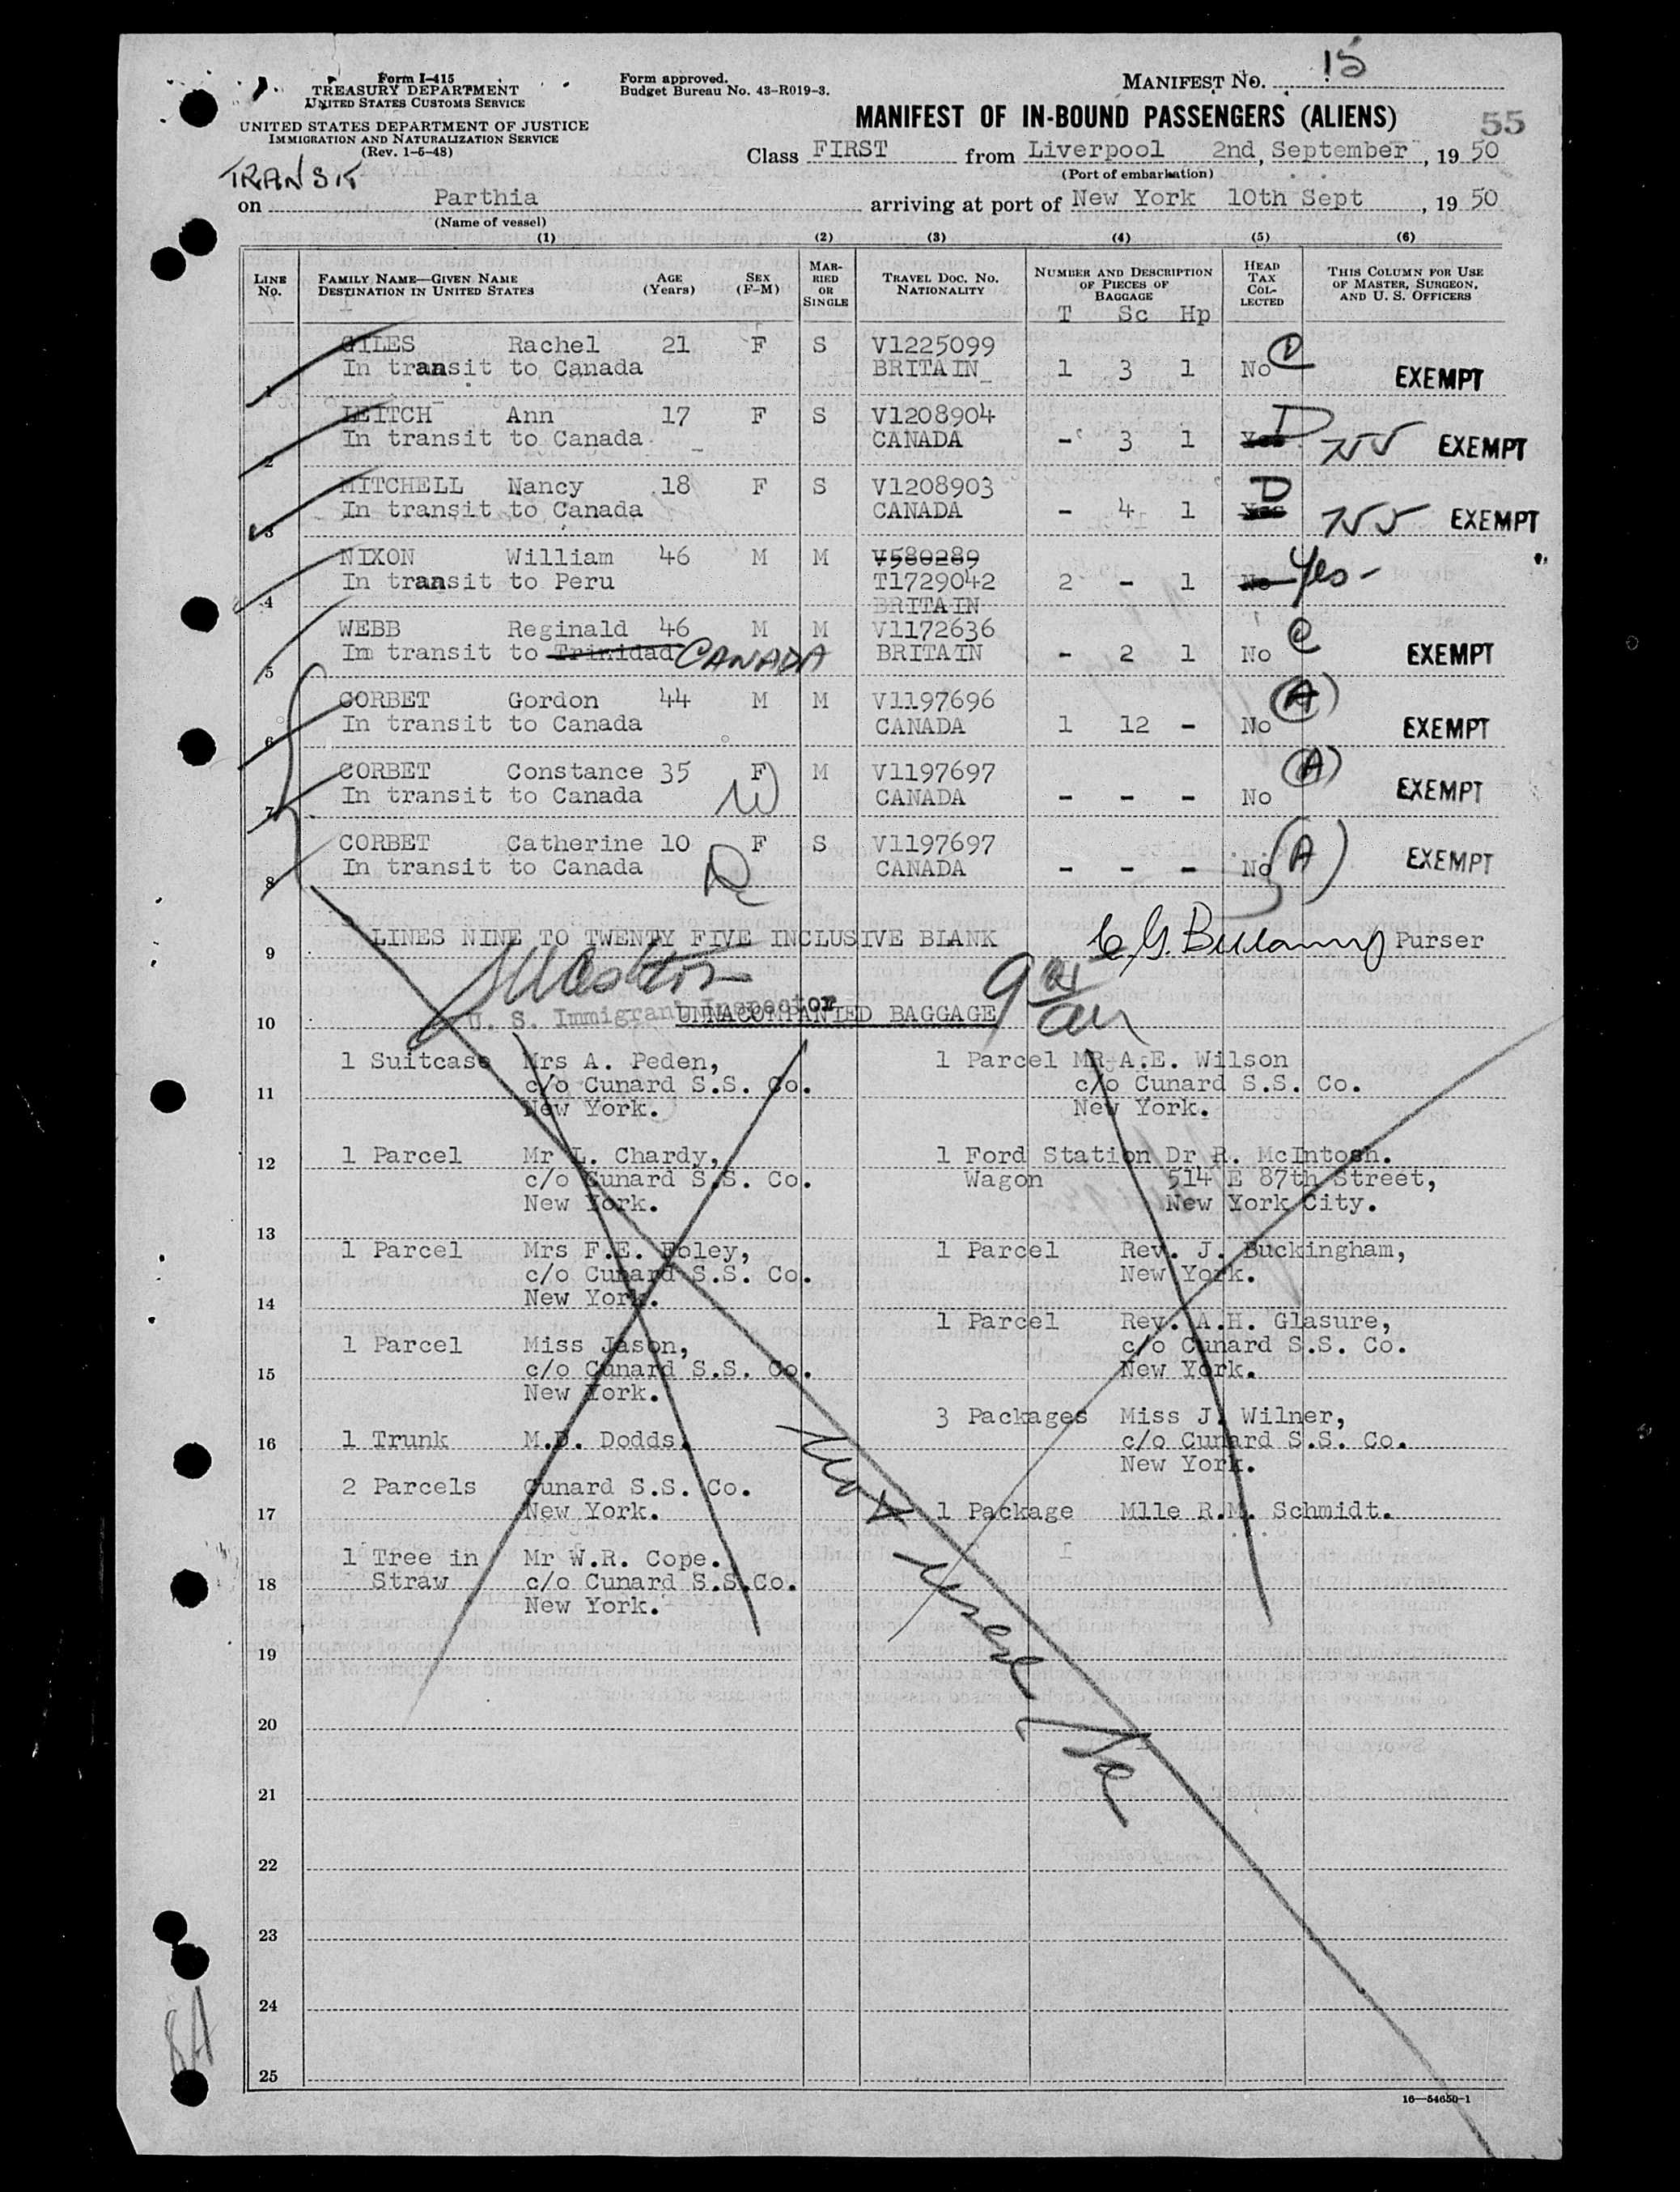 Form I-415
TREASURY DEPARTMENT
UNITED STATES CUSTOMS SERVICE
UNITED STATES DEPARTMENT OF JUSTICE
IMMIGRATION AND NATURALIZATION SERVICE
(Rev. 1-5-48)
Form approved.
Budget Bureau No. 43-R019-3.
MANIFEST NO. 15
MANIFEST OF IN-BOUND PASSENGERS (ALIENS)
55
Class FIRST from Liverpool 2nd, September, 19 50
(Port of embarkation)
TRANSIT
on Parthia arriving at port of New York 10th Sept, 19 50
(Name of vessel)
(1) (2) (3) (4) (5) (6)
LINE No. FAMILY NAME—GIVEN NAME DESTINATION IN UNITED STATES AGE (Years) SEX (F-M) MARRIED OR SINGLE TRAVEL DOC. No. NATIONALITY NUMBER AND DESCRIPTION OF PIECES OF BAGGAGE HEAD TAX COLLECTED THIS COLUMN FOR USE OF MASTER, SURGEON, AND U. S. OFFICERS
T Sc Hp
GILES Rachel 21 F S V1225099
1 In transit to Canada BRITAIN 1 3 1 No EXEMPT
LEITCH Ann 17 F S V1208904 D
2 In transit to Canada CANADA - 3 1 Yes EXEMPT
MITCHELL Nancy 18 F S V1208903 D
3 In transit to Canada CANADA - 4 1 Yes EXEMPT
NIXON William 46 M M V580289
4 In transit to Peru T1729042 2 - 1 No Yes-
BRITAIN
WEBB Reginald 46 M M V1172636
5 Im transit to Trinidad CANADA BRITAIN - 2 1 No EXEMPT
CORBET Gordon 44 M M V1197696 (A)
6 In transit to Canada CANADA 1 12 - No EXEMPT
CORBET Constance 35 F M V1197697 (A)
7 In transit to Canada W CANADA - - - No EXEMPT
CORBET Catherine 10 F S V1197697
8 In transit to Canada CANADA - - - No (A) EXEMPT
9 LINES NINE TO TWENTY FIVE INCLUSIVE BLANK Purser
U. S. Immigrant Inspector
10 UNNACOMPANIED BAGGAGE
1 Suitcase Mrs A. Peden, 1 Parcel MR A.E. Wilson
11 c/o Cunard S.S. Co. c/o Cunard S.S. Co.
New York. New York.
12 1 Parcel Mr L. Chardy, 1 Ford Station Dr R. McIntosh.
c/o Cunard S.S. Co. Wagon 514 E 87th Street,
New York. New York City.
13
1 Parcel Mrs F.E. Foley, 1 Parcel Rev. J. Buckingham,
c/o Cunard S.S. Co. New York.
14 New York.
1 Parcel Rev. A.H. Glasure,
1 Parcel Miss Jason, c/o Cunard S.S. Co.
15 c/o Cunard S.S. Co. New York.
New York.
3 Packages Miss J. Wilner,
16 1 Trunk M.D. Dodds. c/o Cunard S.S. Co.
New York.
2 Parcels Cunard S.S. Co.
17 New York. 1 Package Mlle R.M. Schmidt.
1 Tree in Mr W.R. Cope.
18 Straw c/o Cunard S.S.Co.
New York.
19
20
21
22
23
24
25
8A
16—54650-1